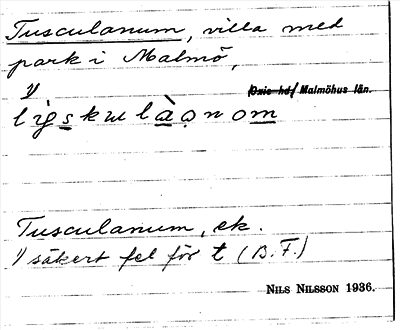 Tusculanum, villa med
park i Malmö,
1)
Oxie hd/ Malmöhus län.
Tusculanum, ek.
1) säkert fel för t (B.F.)
NILS NILSSON 1936.